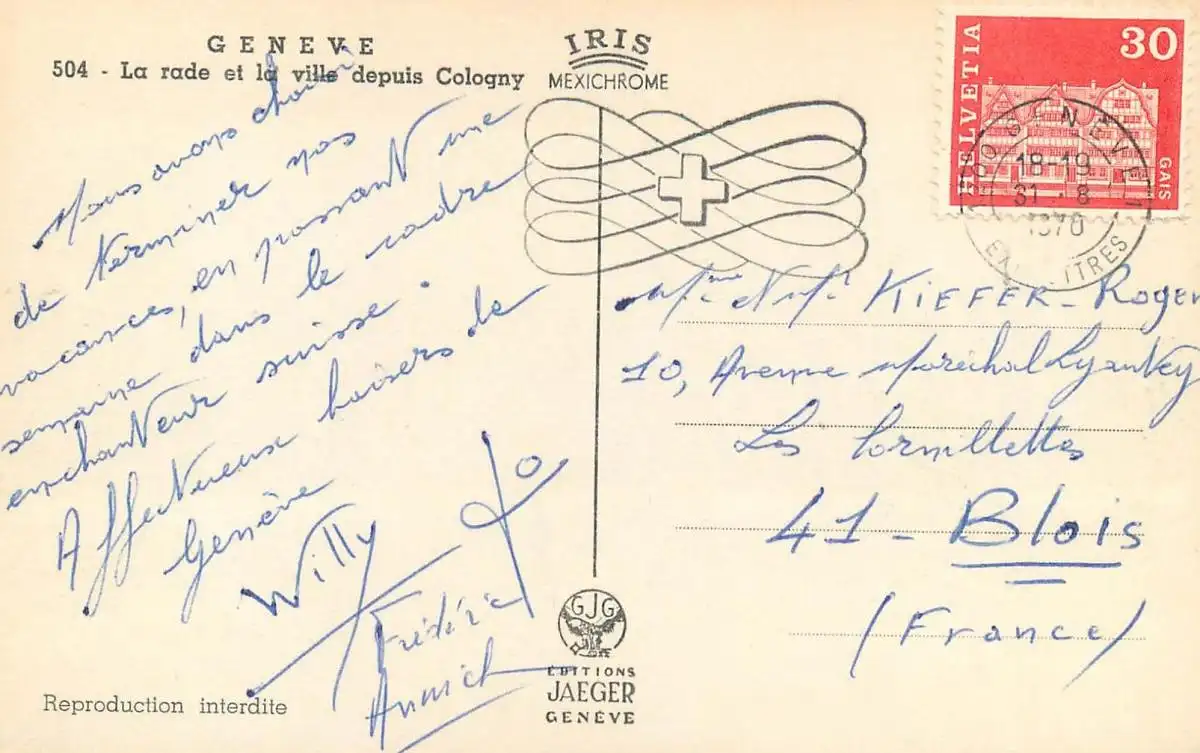 GENEVE
504 - La rade et la ville depuis Cologny
IRIS
MEXICHROME
HELVETIA
30
GAIS
GENEVE 1
18-19
31 - 8
1970
Nous avons choisi
de terminer nos
vacances, en passant une
semaine dans le cadre
enchanteur suisse.
Affectueux baisers de
Genève
Willy
Frédéric
Annick
KIEFFER - Roger
10, Avenue Maréchal Lyautey
Les Cormillettes
41 - Blois
(France)
GJG
EDITIONS
JAEGER
GENÈVE
Reproduction interdite